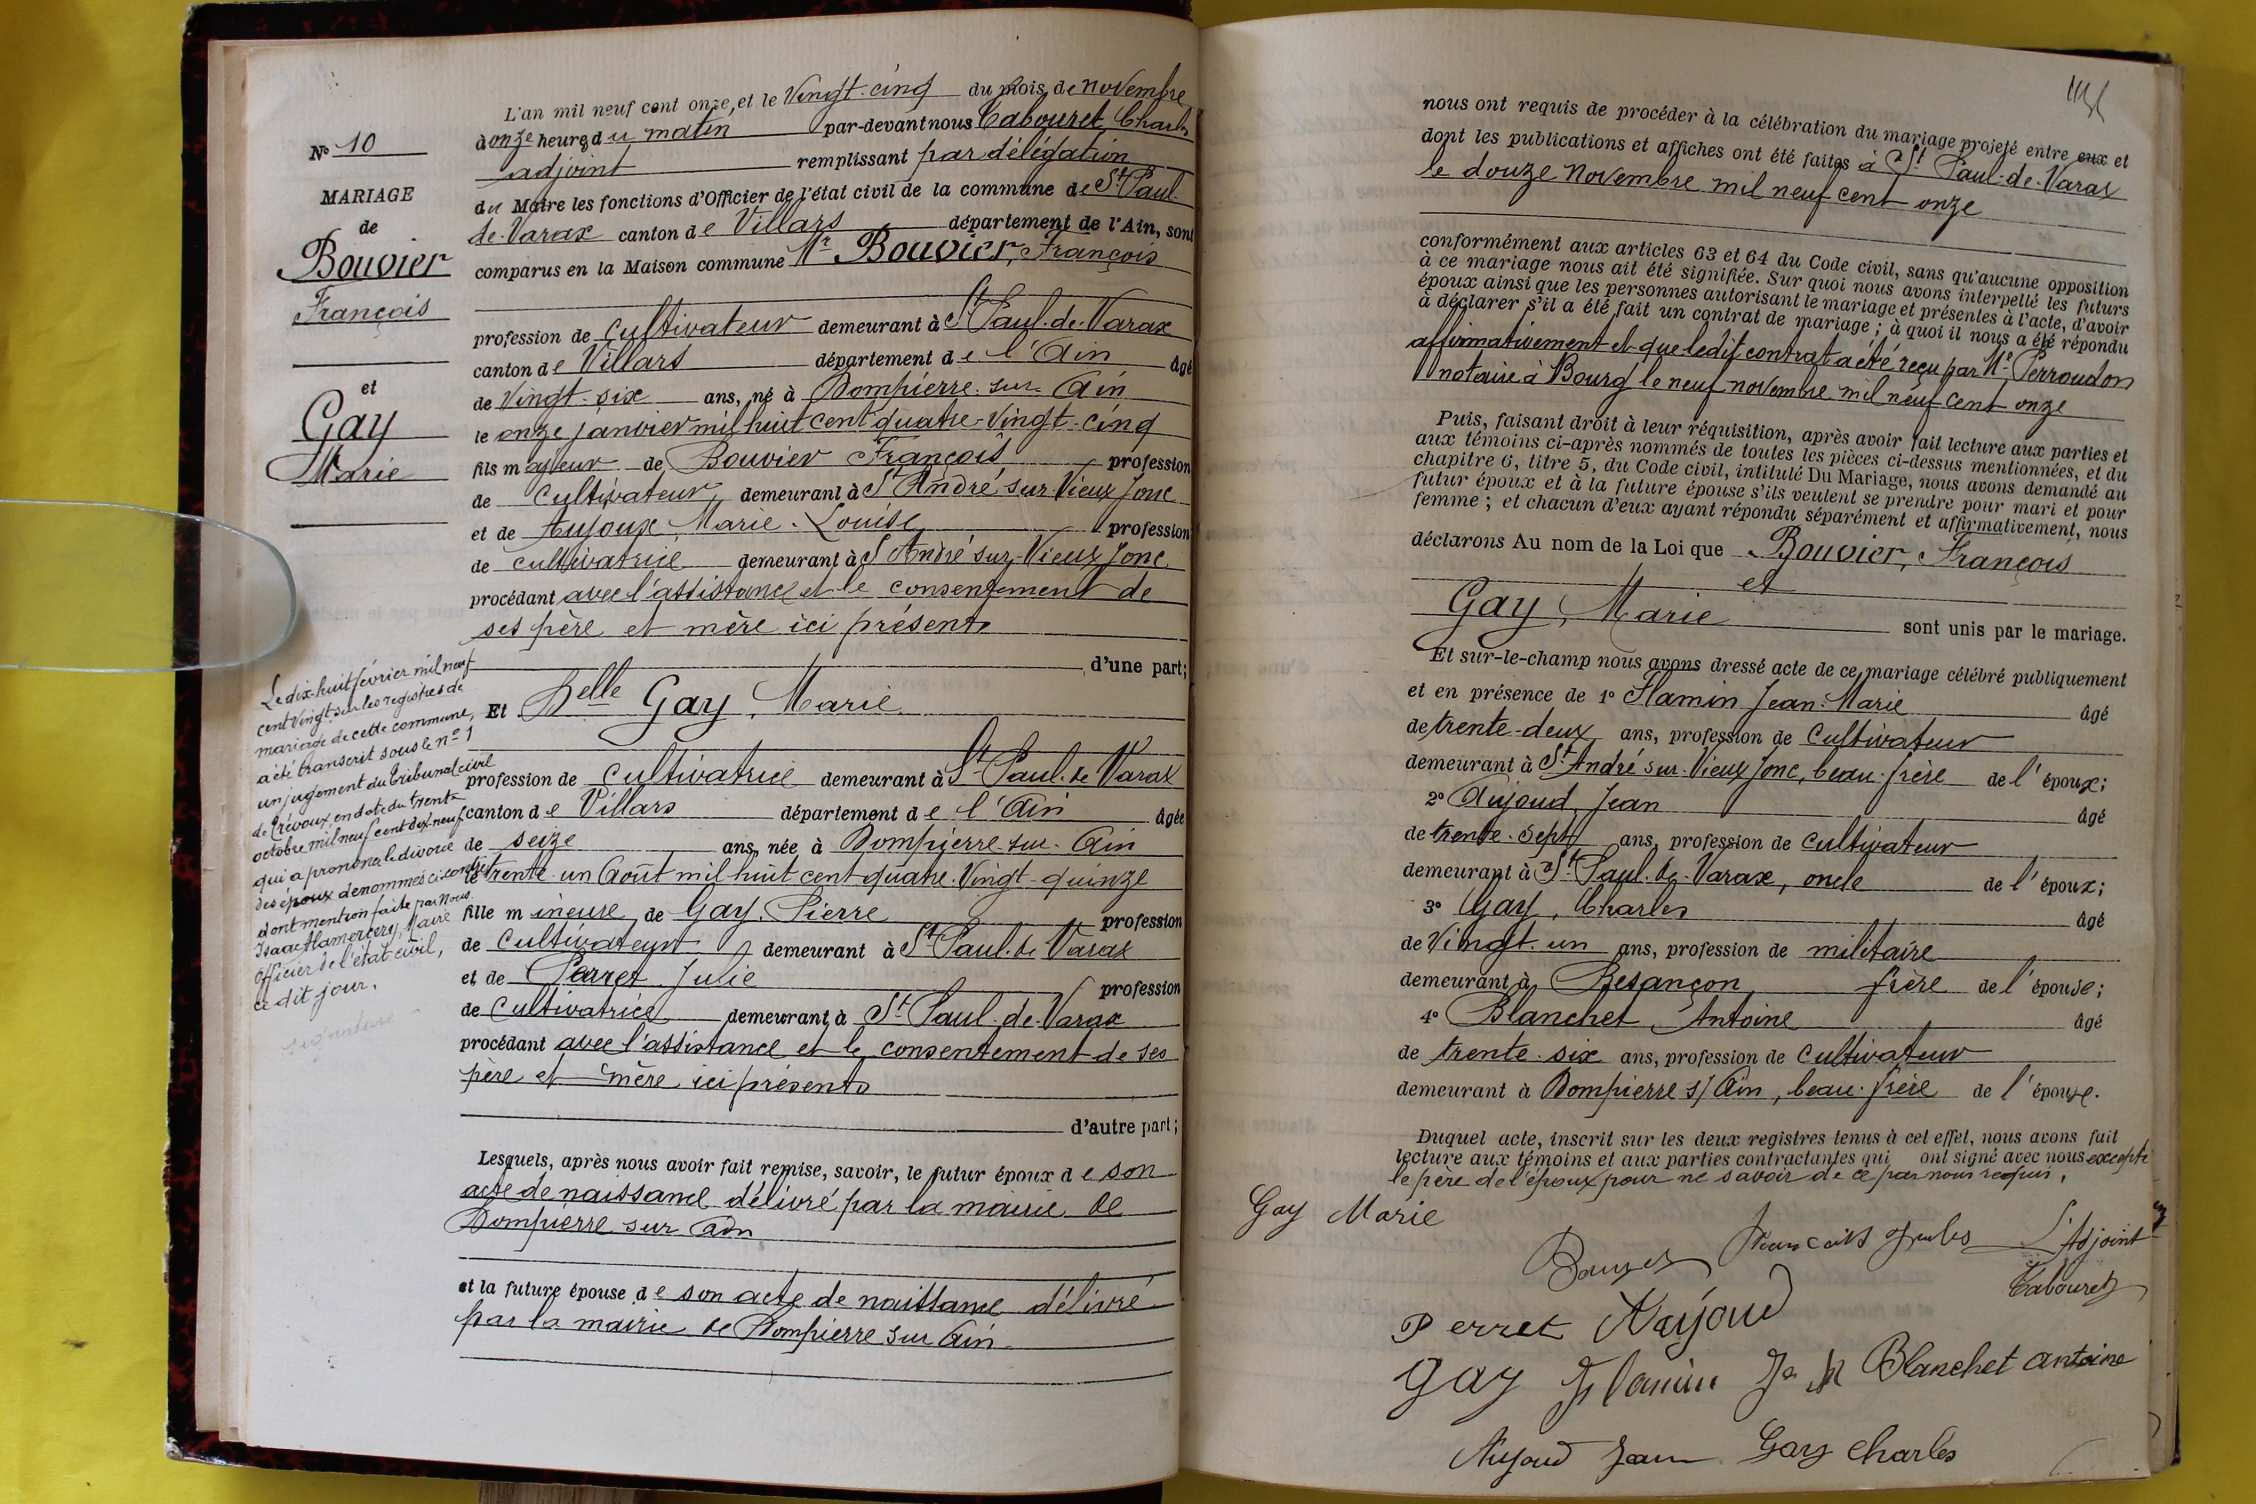 L'an mil neuf cent onze, et le Vingt-cinq du mois de novembre
à onze heures du matin par-devant nous Tabouret, Charles
adjoint remplissant par délégation
du Maire les fonctions d'Officier de l'état civil de la commune de St Paul-
de-Varax canton de Villars département de l'Ain, sont
comparus en la Maison commune Mr Bouvier, François
profession de cultivateur demeurant à St Paul-de-Varax
canton de Villars département de l'Ain âgé
de Vingt-six ans, né à Dompierre-sur-Ain
le onze janvier mil huit cent quatre-Vingt-cinq
fils majeur de Bouvier François profession
de cultivateur, demeurant à St André-sur-Vieux Jonc
et de Aujoux Marie-Louise profession
de cultivatrice demeurant à St André-sur-Vieux Jonc
procédant avec l'assistance et le consentement de
ses père et mère ici présents
d'une part;
Et Delle Gay, Marie
profession de cultivatrice demeurant à St Paul-de-Varax
canton de Villars département de l'Ain âgée
de seize ans, née à Dompierre-sur-Ain
le trente-un Août mil huit cent quatre-Vingt-quinze
fille mineure de Gay, Pierre profession
de cultivateur demeurant à St Paul-de-Varax
et de Perret Julie profession
de cultivatrice demeurant à St Paul-de-Varax
procédant avec l'assistance et le consentement de ses
père et mère ici présents
d'autre part;
Lesquels, après nous avoir fait remise, savoir, le futur époux de son
acte de naissance délivré par la mairie de
Dompierre sur Ain
et la future épouse de son acte de naissance délivré
par la mairie de Dompierre sur Ain
N° 10
MARIAGE
de
Bouvier
François
et
Gay
Marie
Le dix-huit février mil neuf
cent vingt sur les registres de
mariage de cette commune,
a été transcrit sous le n° 1
un jugement du tribunal civil
de Trévoux en date du trente
octobre mil neuf cent dix-neuf
qui a prononcé le divorce
des époux dénommés ci-contre
dont mention faite par Nous
Isaac Flamercery, Maire
officier de l'état civil,
ce dit jour.
signature
nous ont requis de procéder à la célébration du mariage projeté entre eux et
dont les publications et affiches ont été faites à St Paul-de-Varax
le douze Novembre mil neuf cent onze
conformément aux articles 63 et 64 du Code civil, sans qu'aucune opposition
à ce mariage nous ait été signifiée. Sur quoi nous avons interpellé les futurs
époux ainsi que les personnes autorisant le mariage et présentes à l'acte, d'avoir
à déclarer s'il a été fait un contrat de mariage; à quoi il nous a été répondu
affirmativement et que ledit contrat a été reçu par Me Perroudon
notaire à Bourg le neuf novembre mil neuf cent onze
Puis, faisant droit à leur réquisition, après avoir fait lecture aux parties et
aux témoins ci-après nommés de toutes les pièces ci-dessus mentionnées, et du
chapitre 6, titre 5, du Code civil, intitulé Du Mariage, nous avons demandé au
futur époux et à la future épouse s'ils veulent se prendre pour mari et pour
femme; et chacun d'eux ayant répondu séparément et affirmativement, nous
déclarons Au nom de la Loi que Bouvier, François
et
Gay, Marie sont unis par le mariage.
Et sur-le-champ nous avons dressé acte de ce mariage célébré publiquement
et en présence de 1° Flamin Jean-Marie âgé
de trente-deux ans, profession de cultivateur
demeurant à St André-sur-Vieux Jonc, beau-frère de l'époux;
2° Aujoud, Jean âgé
de trente-sept ans, profession de cultivateur
demeurant à St Paul-de-Varax, oncle de l'époux;
3° Gay, Charles âgé
de Vingt-un ans, profession de militaire
demeurant à Besançon frère de l'épouse;
4° Blanchet, Antoine âgé
de trente-six ans, profession de cultivateur
demeurant à Dompierre s/Ain, beau-frère de l'épouse.
Duquel acte, inscrit sur les deux registres tenus à cet effet, nous avons fait
lecture aux témoins et aux parties contractantes qui ont signé avec nous excepté
le père de l'époux pour ne savoir de ce par nous requis.
Gay Marie
François L'Adjoint
Tabouret
Perret
Gay Flamin Blanchet antoine
Aujoud Jean Gay Charles